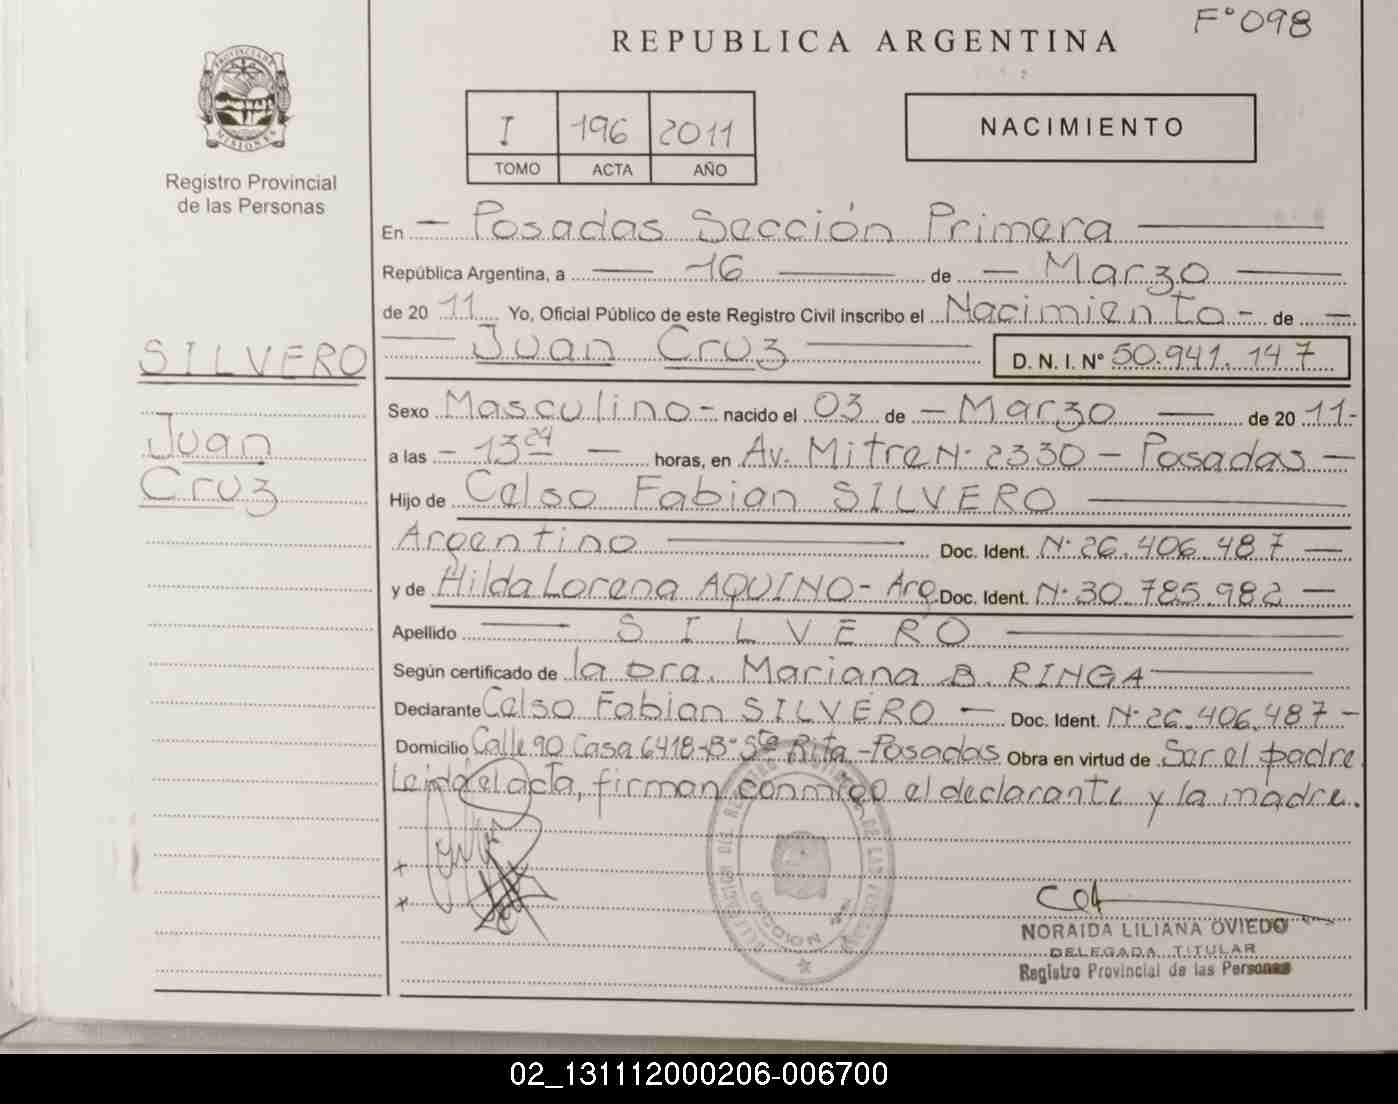 F° 098
REPUBLICA ARGENTINA
PROVINCIA DE
MISIONES
Registro Provincial
de las Personas
I 196 2011
TOMO ACTA AÑO
NACIMIENTO
En - Posadas Sección Primera
República Argentina, a 16 de - Marzo
de 20 11 Yo, Oficial Público de este Registro Civil inscribo el Nacimiento - de -
Juan Cruz D. N. I. N° 50.941.147
SILVERO
Juan
Cruz
Sexo Masculino - nacido el 03 de - Marzo de 20 11-
a las - 13 24 - horas, en Av. Mitre N· 2330 - Posadas -
Hijo de Celso Fabian SILVERO
Argentino Doc. Ident. N· 26.406.487 -
y de Hilda Lorena AQUINO - Arg Doc. Ident. N· 30.785.982 -
Apellido SILVERO
Según certificado de la Dra. Mariana B. RINGA
Declarante Celso Fabian SILVERO - Doc. Ident. N· 26.406.487 -
Domicilio Calle 90 Casa 6418-B° Sta Rita - Posadas Obra en virtud de Ser el padre
Leida el acta, firman conmigo el declarante y la madre.
NORAIDA LILIANA OVIEDO
DELEGADA TITULAR
Registro Provincial de las Personas
02_131112000206-006700